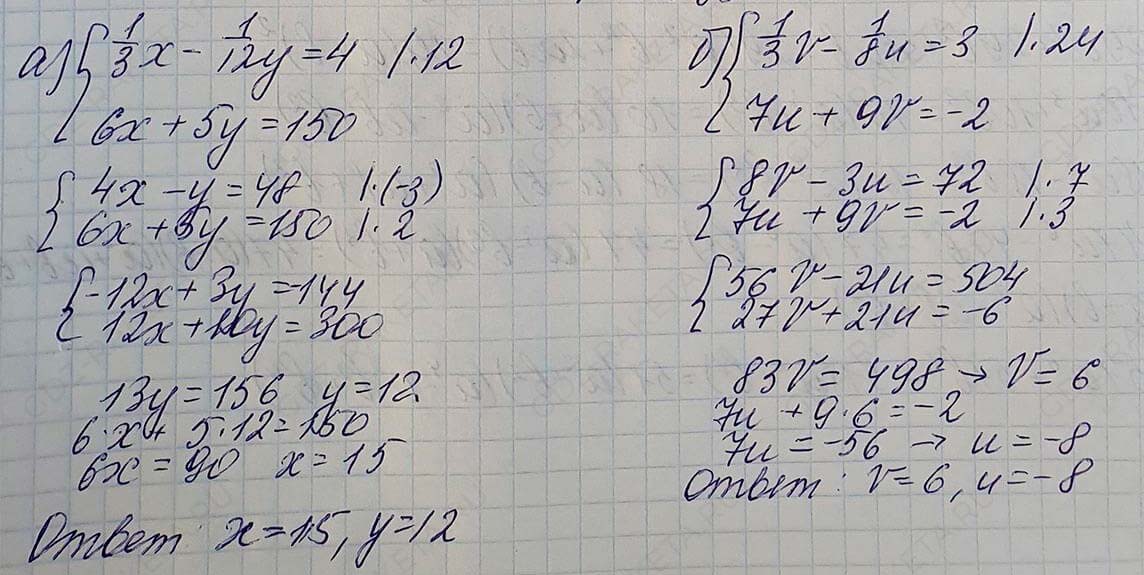 а) { 1/3 x - 1/12 y = 4 | · 12
6x + 5y = 150
{ 4x - y = 48 | · (-3)
6x + 5y = 150 | · 2
{ -12x + 3y = 144
12x + 10y = 300
13y = 156 y = 12
6 · x + 5 · 12 = 150
6x = 90 x = 15
Ответ: x = 15, y = 12
б) { 1/3 v - 1/8 u = 3 | · 24
7u + 9v = -2
{ 8v - 3u = 72 | · 7
7u + 9v = -2 | · 3
{ 56v - 21u = 504
27v + 21u = -6
83v = 498 → v = 6
7u + 9 · 6 = -2
7u = -56 → u = -8
Ответ: v = 6, u = -8